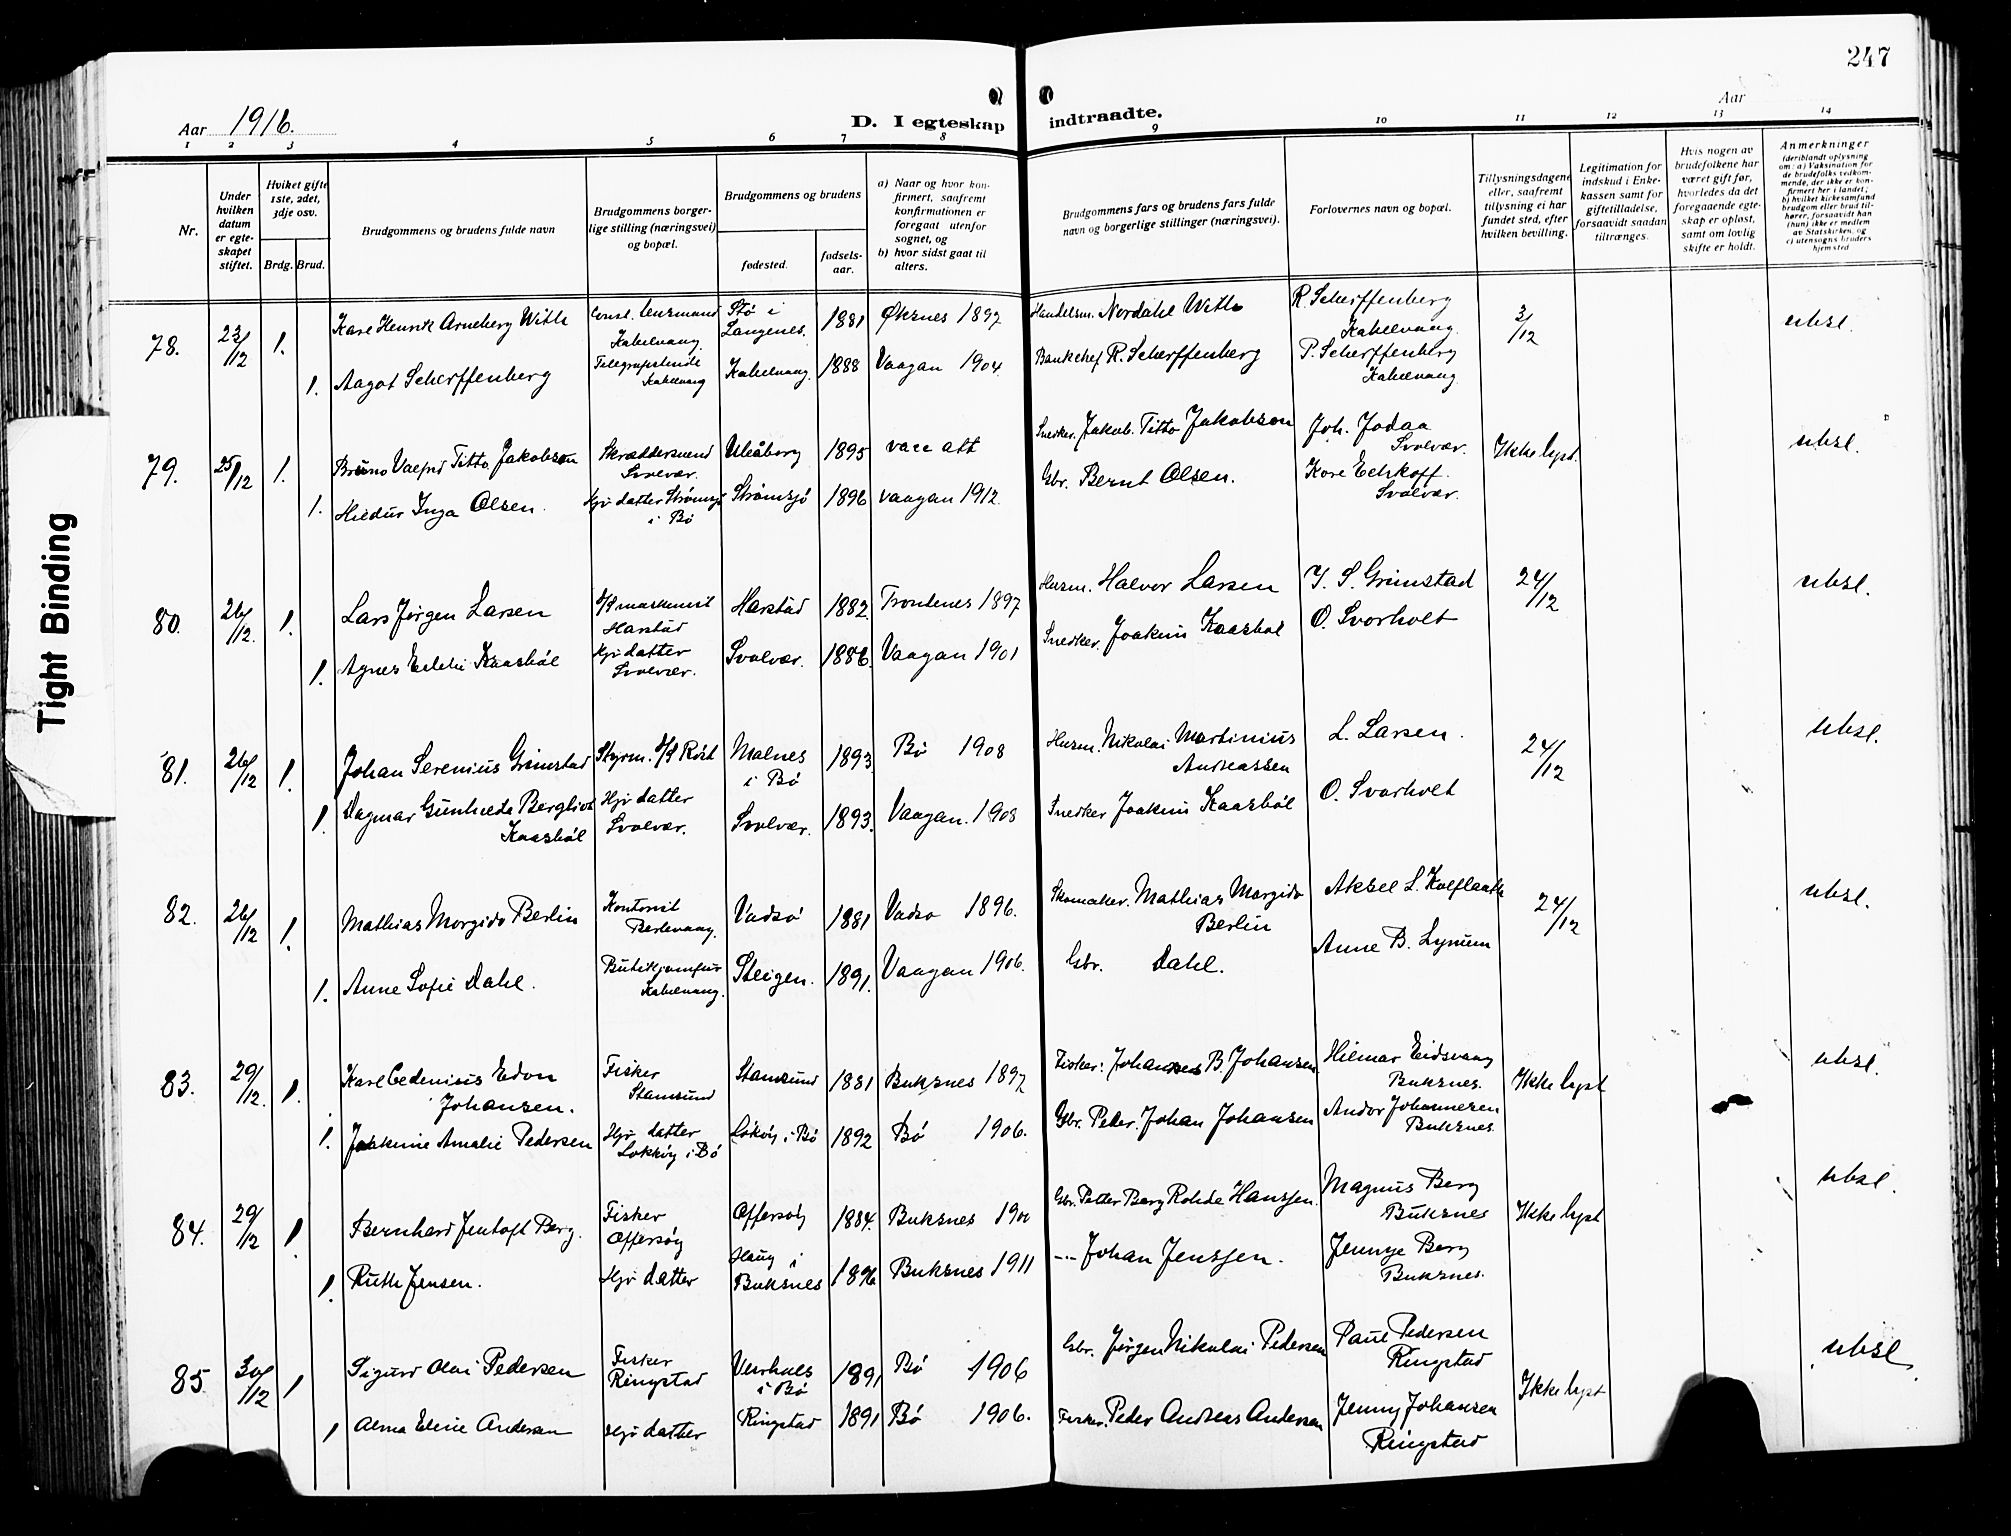 247
Aar 1916.
D. I egteskap indtraadte.
Aar
1 2 3 4 5 6 7 8 9 10 11 12 13 14
Nr.
Under hvilken datum er egteskapet stiftet.
Hviket gifte 1ste, 2det, 3dje osv.
Brdg. Brud.
Brudgommens og brudens fulde navn
Brudgommens borgerlige stilling (næringsvei) og bopæl.
Brudgommens og brudens
fødested.
fødselsaar.
a) Naar og hvor konfirmert, saafremt konfirmationen er foregaat utenfor sognet, og
b) hvor sidst gaat til alters.
Brudgommens fars og brudens fars fulde navn og borgerlige stillinger (næringsvei).
Forlovernes navn og bopæl.
Tillysningsdagene eller, saafremt tillysning ei har fundet sted, efter hvilken bevilling.
Legitimation for indskud i Enkekassen samt for giftetilladelse, forsaavidt saadan tiltrænges.
Hvis nogen av brudefolkene har været gift før, hvorledes da det foregaaende egteskap er opløst, samt om lovlig skifte er holdt.
Anmerkninger
(deriblandt oplysning om: a) Vaksination for de brudefolks vedkommende, der ikke er konfirmert her i landet; b) hvilket kirkesamfund brudgom eller brud tilhører, forsaavidt han (hun) ikke er medlem av Statskirken, og c) utensogns bruders hjemsted
78. 23/12 1. Karl Henrik Arneberg With Const. lensmand Kabelvaag Stø i Langenes. 1881 Øksnes 1897 Handelsm. Nordahl With R. Scherffenberg Kabelvaag 3/12 ubsl.
1. Aagot Scherffenberg Telegrafistinde Kabelvaag Kabelvaag. 1888 Vaagan 1904 Bankchef R. Scherffenberg P. Scherffenberg Kabelvaag
79. 25/12 1. Bruno Valfrid Titto Jakobson Skræddersvend Svolvær. Uleåborg 1895 Snedker. Jakob Titto Jakobson Joh. Jodaa Svolvær. Ikke lyst. ubsl.
1. Hildur Inga Olsen. Hjv datter Strømsjö i Bö Strömsjö 1896 Vaagan 1912. Gbr. Bernt Olsen. Kore Svolvær.
80. 26/12. 1. Lars Jørgen Larsen D/S maskinist Harstad Harstad 1882. Trondenes 1897 Husm. Halvor Larsen J. S. Grimstad 24/12 ubsl.
1. Agnes Kaasböl Hjv datter Svolvær. Svolvær. 1886. Vaagan 1901 Snedker. Joakim Kaasböl O. Svorholt
81. 26/12 1. Johan Serenius Grimstad Styrm. D/S Röst Malnes i Bö 1893. Bö 1908 Husm. Nikolai Martinius Andreassen L. Larsen. 24/12 ubsl.
1. Dagmar Gunhilda Bergliot Kaasböl Hjv datter Svolvær. Svolvær. 1893. Vaagan. 1908 Snedker Joakim Kaasböl O. Svorholt
82. 26/12 1. Mathias Morgido Berlin Kontorist Berlevaag. Vadsö 1881 Vadsø 1896. Skomaker. Mathias Morgido Berlin Aksel L. 24/12 ubsl.
1. Anne Sofie Dahl. Butikjomfru Kabelvaag. Steigen. 1891. Vaagan 1906. Gbr. Dahl. Anne B. Lynum
83. 29/12. 1. Karl Cedenius Edon Johansen. Fisker Stamsund Stamsund 1881 Buksnes 1897 Fisker: Johannes B. Johansen Hilmar Eidsvaag Buksnes. Ikke lyst ubsl.
1. Joakime Amalie Pedersen Hjv datter Lokköy i Bö Lököy i Bö 1892 Bö 1906. Gbr. Peder Johan Johansen Andor Johannesen Buksnes.
84. 29/12 1. Bernhard Jentoft Berg. Fisker Offersöy Offersöy 1884. Buksnes 1900 Gbr. Petter Berg Rohde Hanssen. Magnus Berg Buksnes Ikke lyst ubsl.
1. Ruth Jensen. Hjv datter Haug i Buksnes 1896 Buksnes 1911 --- Johan Jenssen. Jennye Berg Buksnes.
85. 30/12 1 Sigurd Olai Pedersen Fisker Ringstad i Bö 1891 Bö 1906 Gbr. Jørgen Nikolai Pedersen Paul Pedersen Ringstad Ikke lyst ubsl.
1 Alma Eline Andersen Hjv datter Ringstad 1891 Bö 1906. Fisker. Peder Andreas Andersen Jenny Johansen Ringstad
Tight Binding